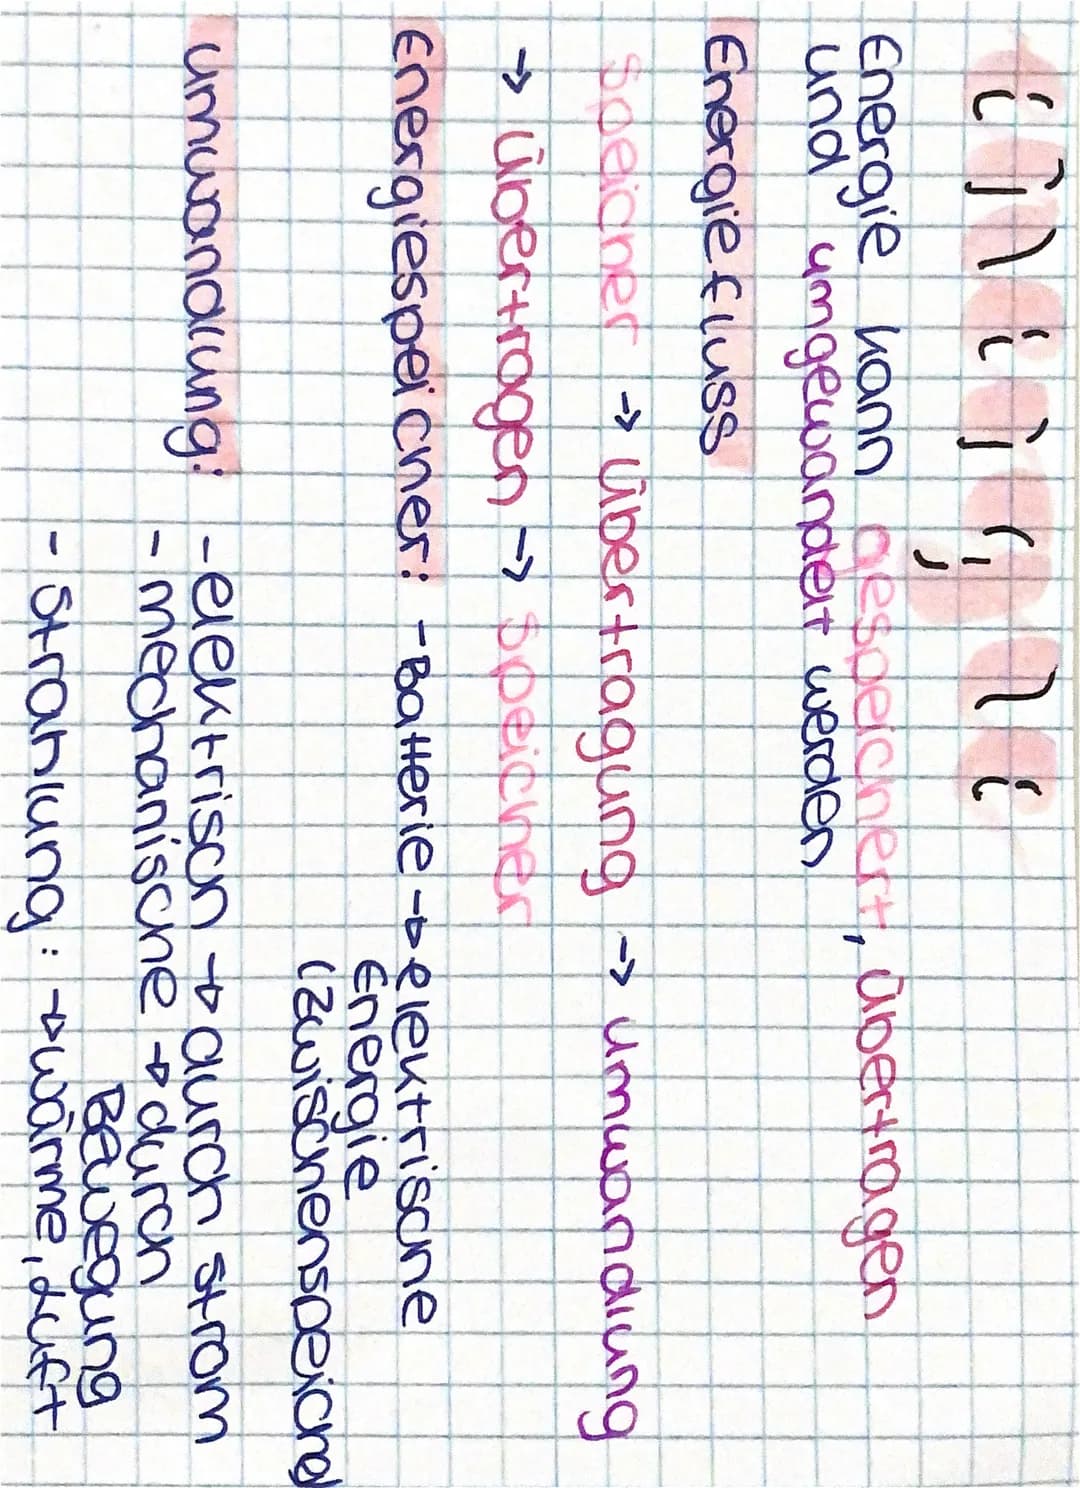 Energie kann gespeichert, übertragen
und umgewandelt werden
Energiefluss
Speicher → Übertragung → Umwandlung
→ Übertragen → Speicher
Energiespeicher: - Batterie → elektrische
Energie
(Zwischenspeicher)
Umwandlung: - elektrisch → durch Strom
- mechanische → durch
Bewegung
- Strahlung: → wärme, Luft